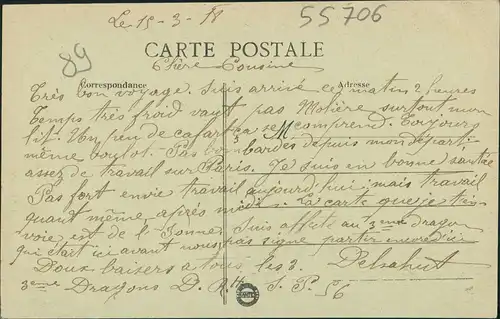 Le 15-3-18
55706
89
CARTE POSTALE
Chère Cousine
Correspondance
Adresse
Très bon voyage. Suis arrivé ce matin 2 heures
Temps très froid vaut pas Molière surtout mon
lit. Un peu de cafard ça se comprend. Toujours
même boulot. Pas bombardés depuis mon départ
assez de travail sur Paris. Je suis en bonne santée
Pas fort envie travail aujourd'hui, mais travail
quant même, après midi. La carte que je t'en
voie est de la Somme. Suis affecté au 3eme dragon
qui était ici avant nous pas signe partir encore d'ici
Doux baisers a tous les 3. Delsahut
3eme Dragons D. S. P. 56